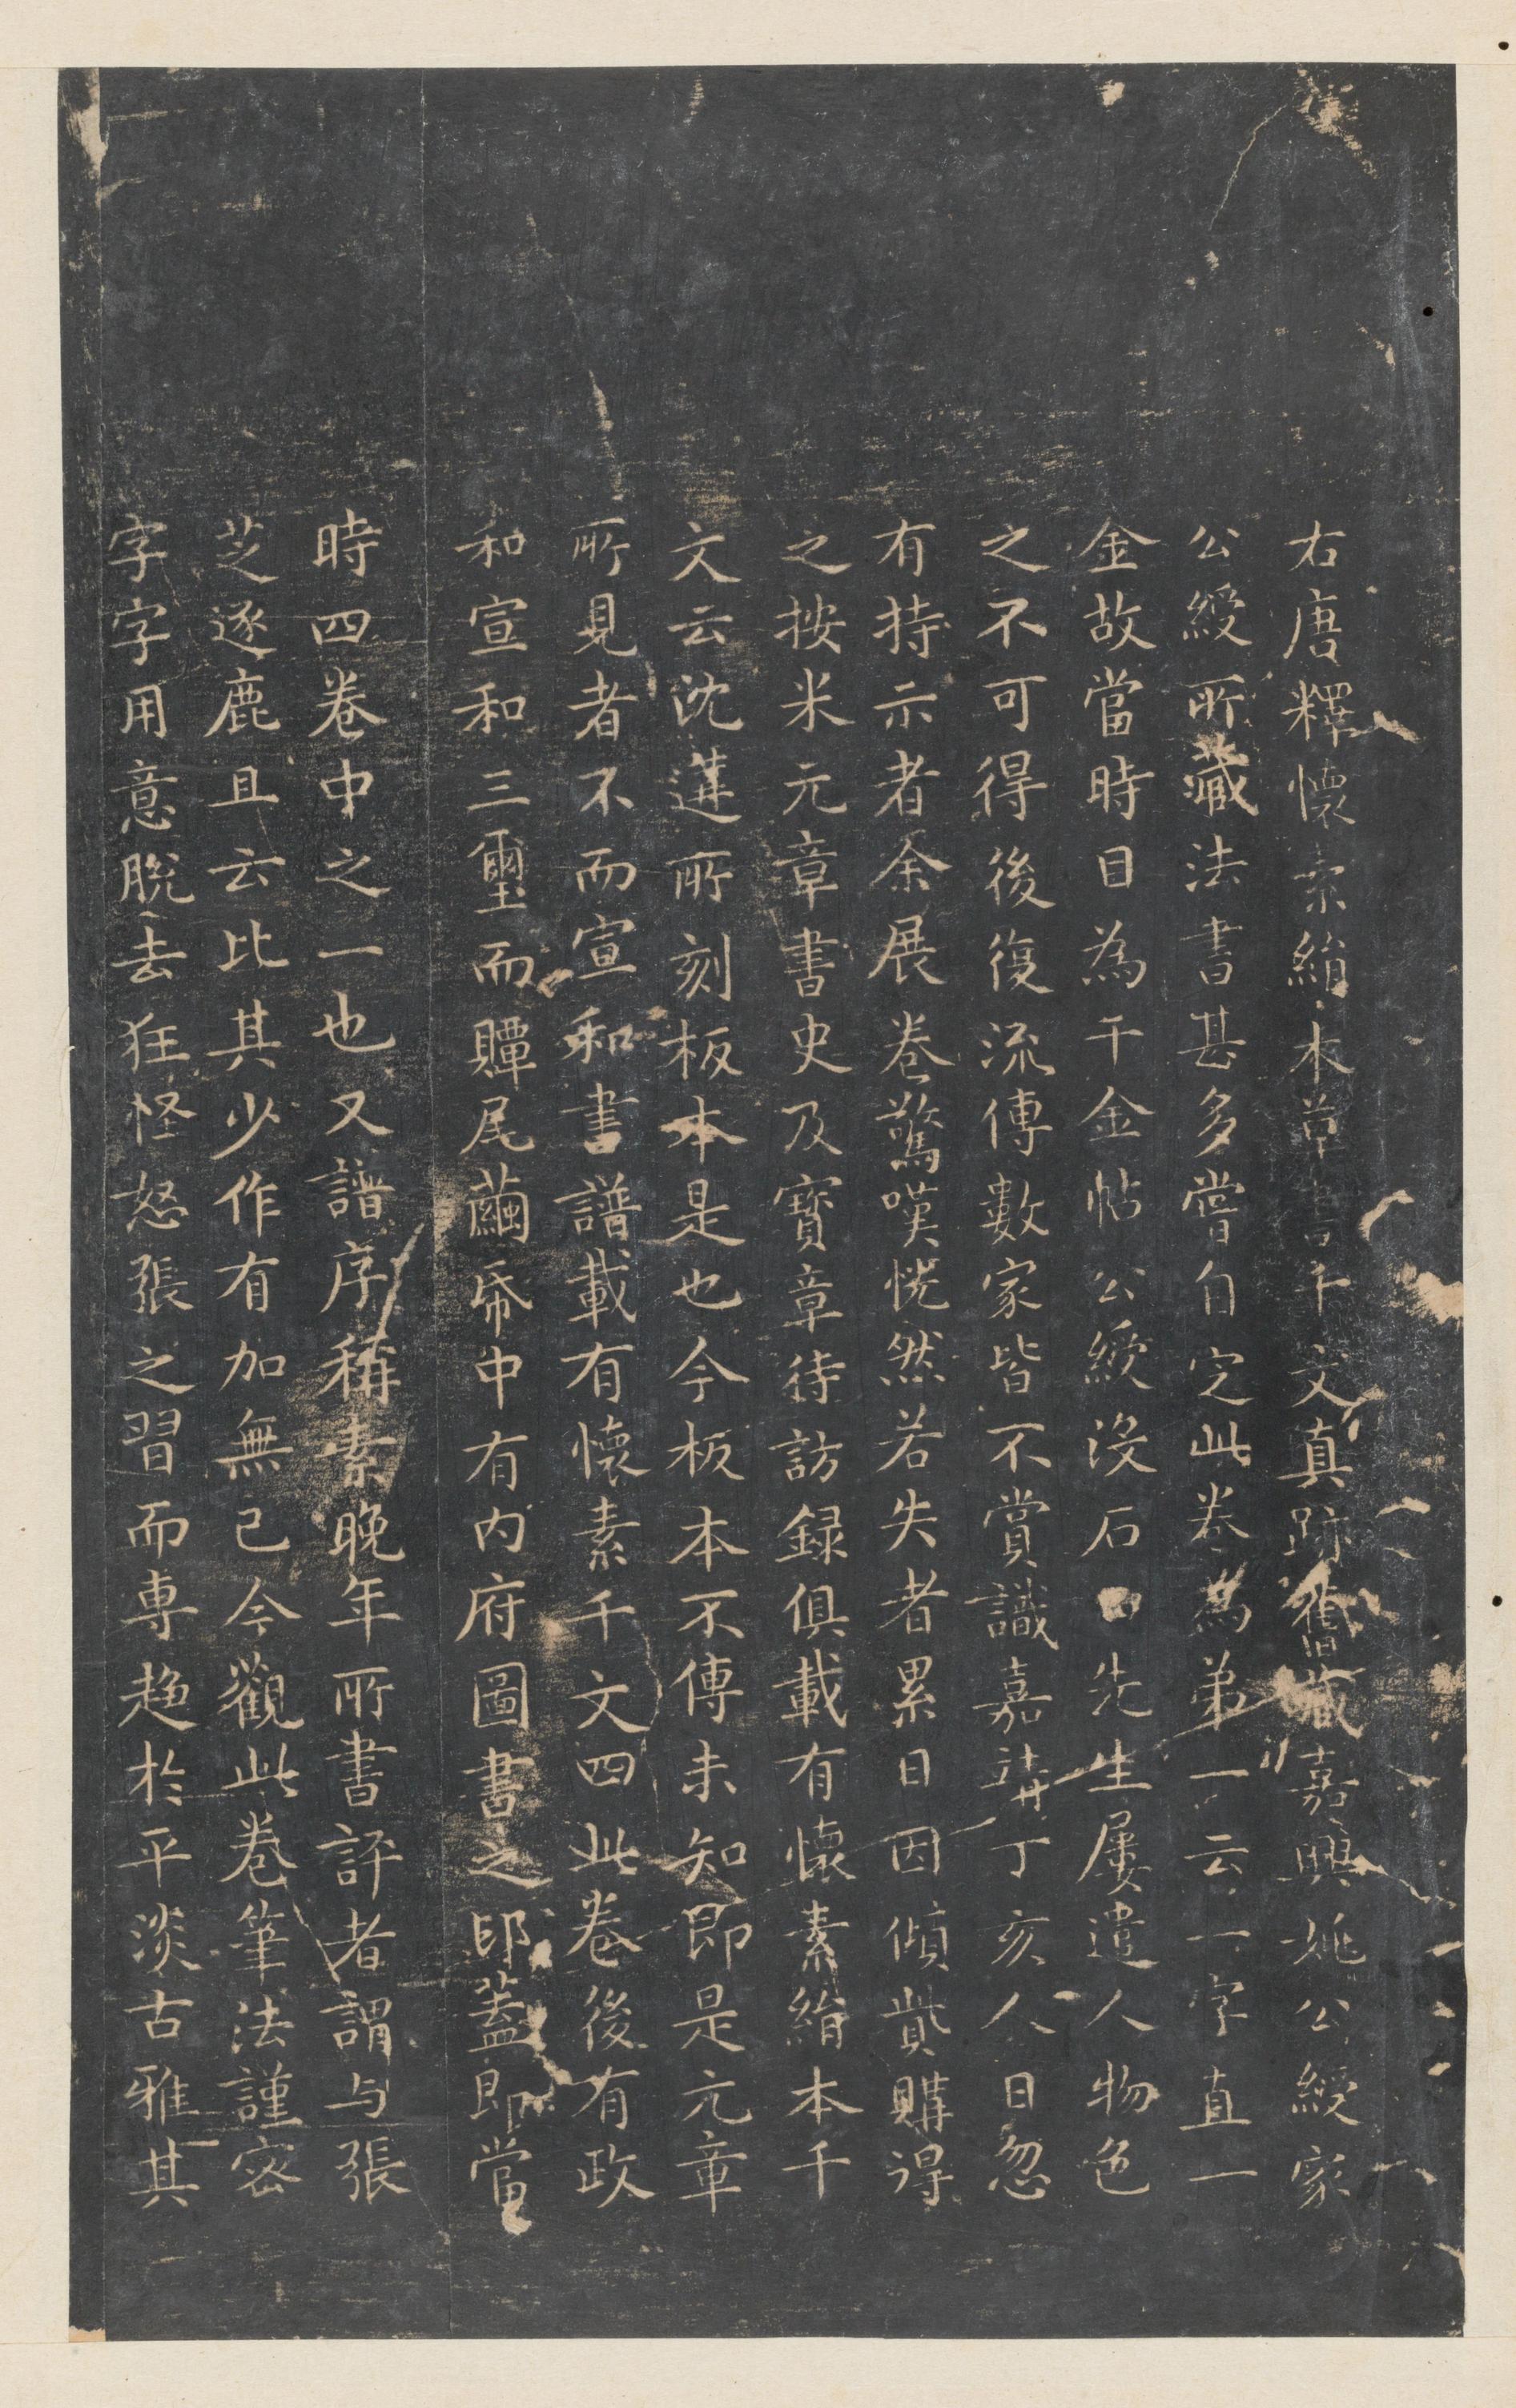 右唐釋懷素絹本草書千文真跡舊藏嘉興姚公綬家
公綬所藏法書甚多嘗自定此卷為第一云一字直一
金故當時目為千金帖公綬沒石田先生屢遣人物色
之不可得後復流傳數家皆不賞識嘉靖丁亥人日忽
有持示者余展卷驚嘆恍然若失者累日因傾貲購得
之按米元章書史及寶章待訪録俱載有懷素絹本千
文云沈遘所刻板本是也今板本不傳未知即是元章
所見者不而宣和書譜載有懷素千文四此卷後有政
和宣和三璽而贉尾繭帋中有内府圖書之印蓋即當
時四卷中之一也又譜序稱素晚年所書評者謂与張
芝逐鹿且云比其少作有加無已今觀此卷筆法謹密
字字用意脫去狂怪怒張之習而專趋於平淡古雅其